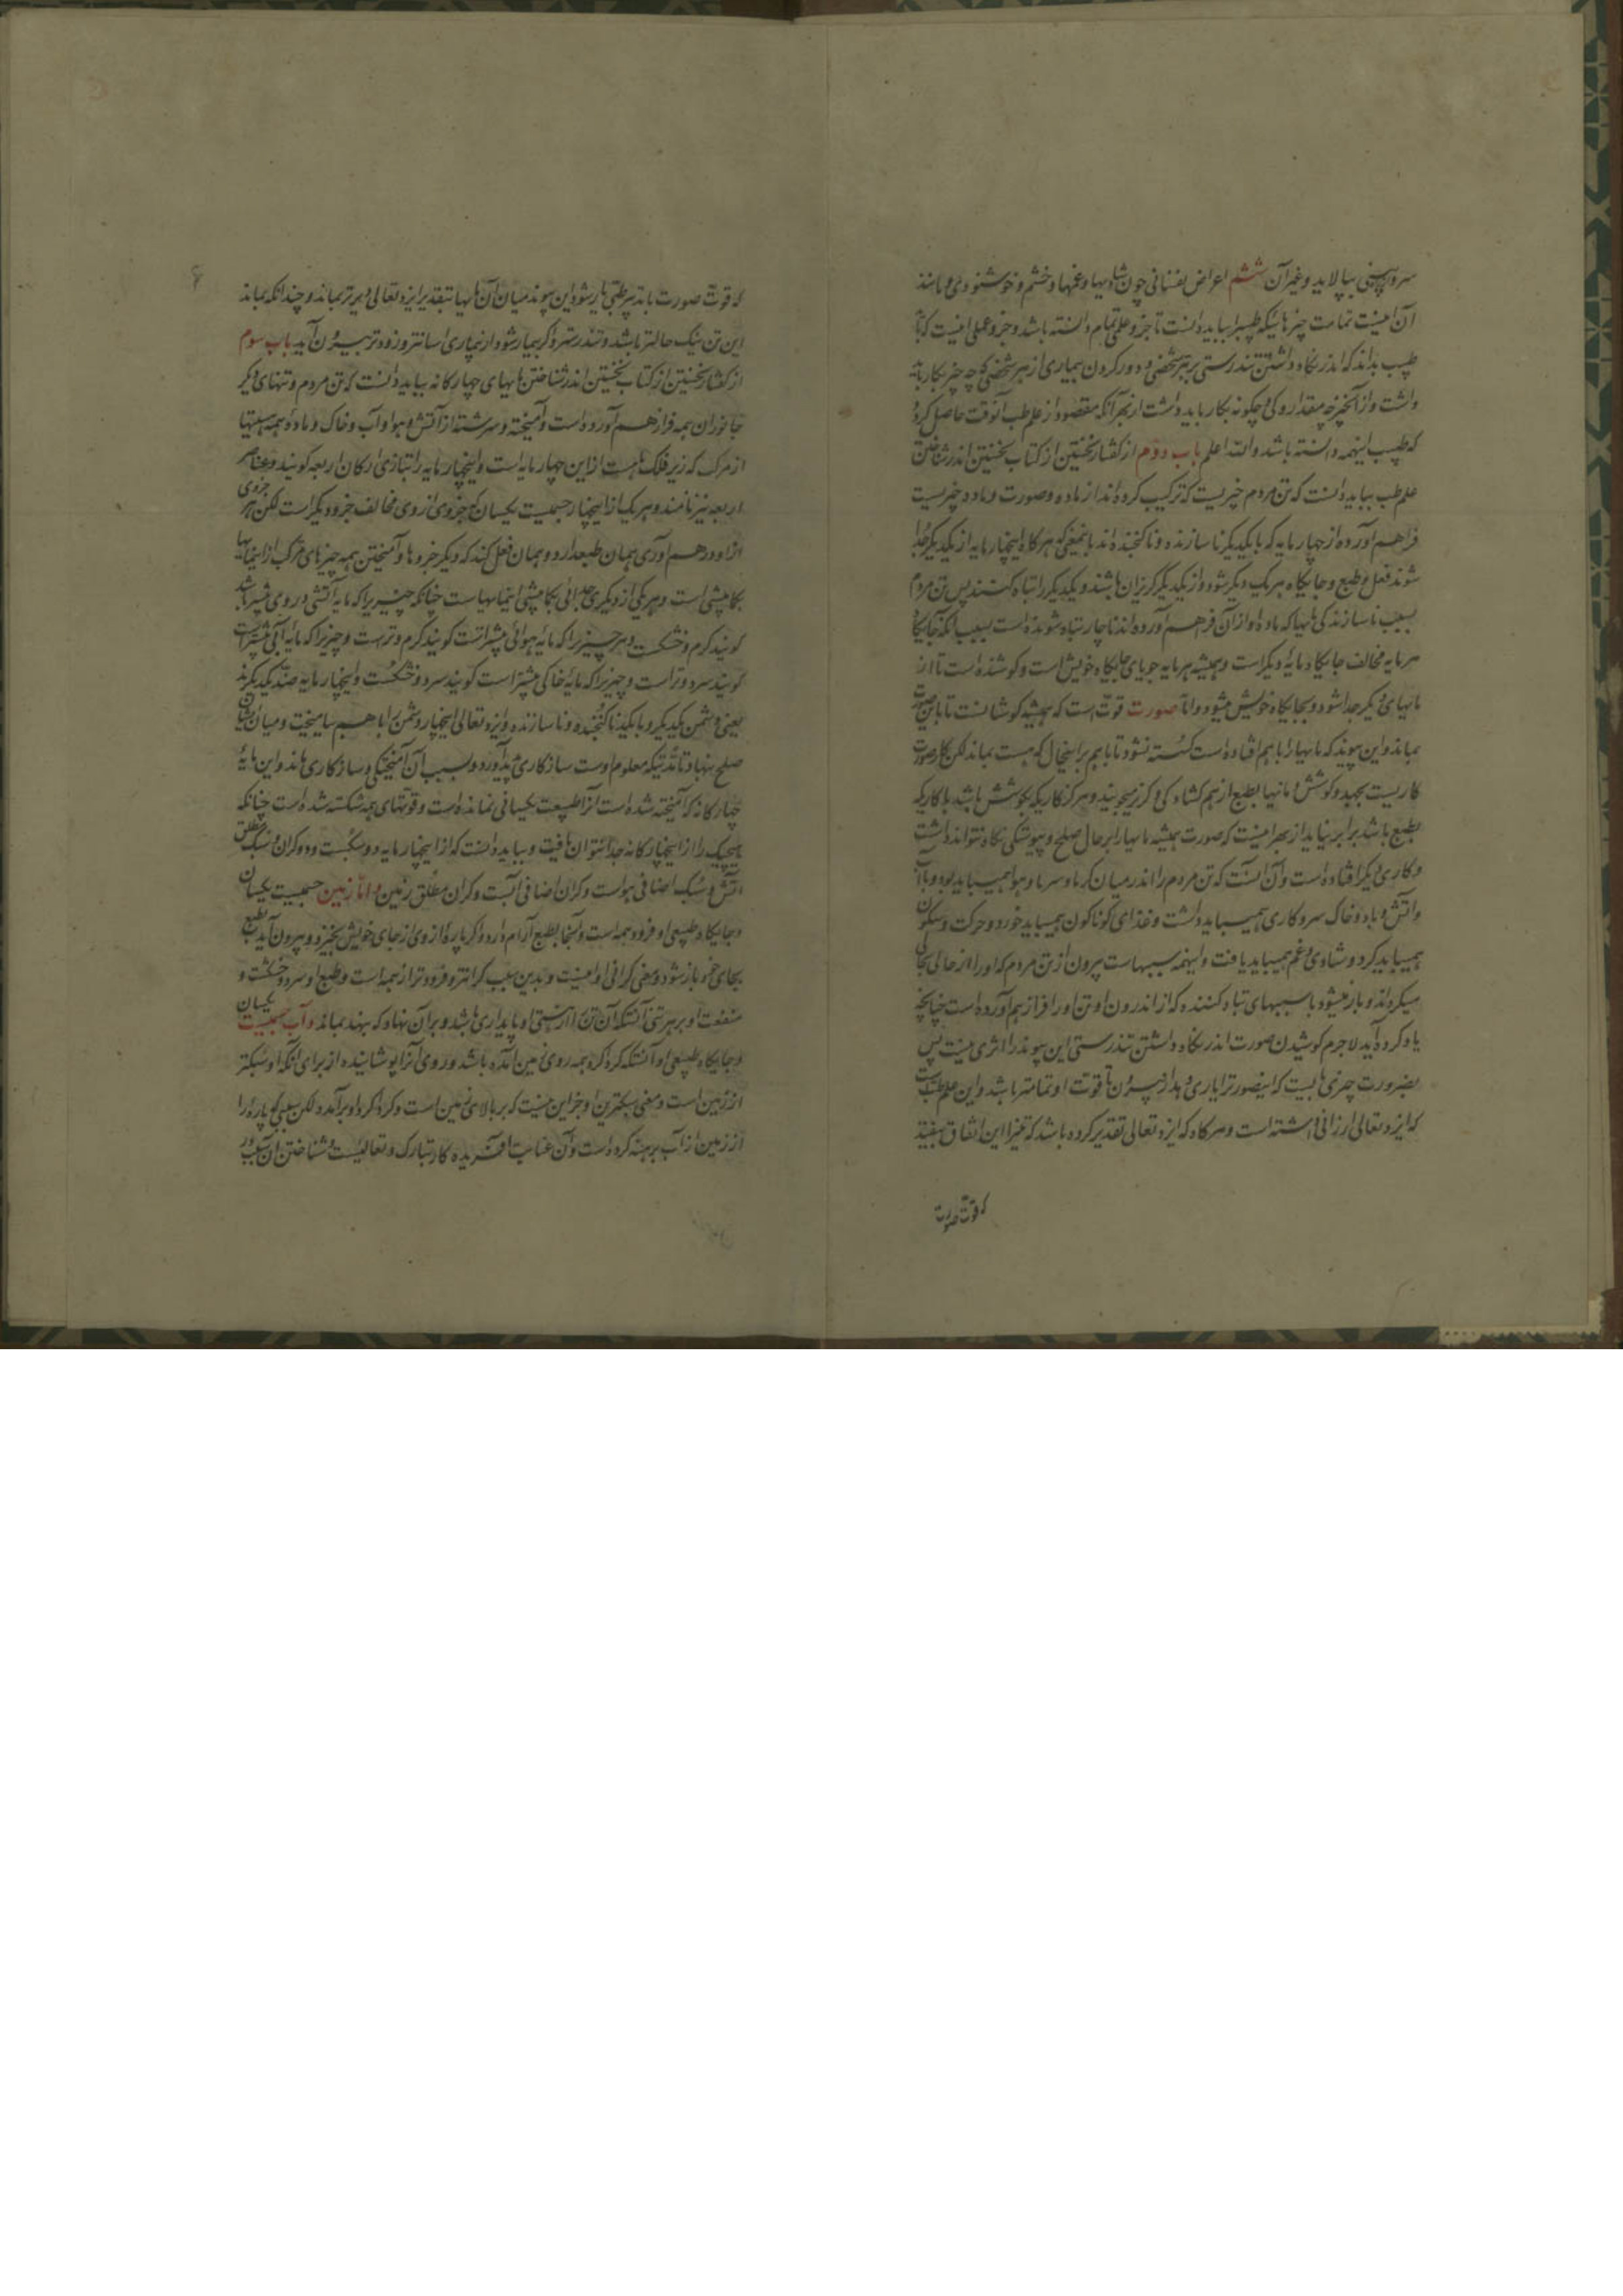 سر و بینی بپالاید و غیر آن ششم اعراض نفسانی چون شادیها و غمها و خشم و خوشنودی و مانند
آن اینست تمامت چیزهائیکه طبیبرا بباید دانست تا جزو علمی تمام دانسته باشد و جزو عملی اینست که تا
طبیب بداند که اندر نگاه داشتن تندرستی بر هر شخصی و دور کردن بیماری از هر شخصی که چه چیز بکار باید
داشت و از آنچیز چه مقدار و کی و چکونه بکار باید داشت از بهر آنکه مقصود از علم طب آنوقت حاصل کردد
که طبیب اینهمه دانسته باشد والله اعلم باب دوم از کفتار نخستین از کتاب نخستین اندر شناختن
علم طب بباید دانست که تن مردم چیزیست که ترکیب کرده اند از ماده و صورت و ماده چیزیست
فراهم آورده از چهار مایه که با یکدیگر ناسازنده و ناکنجنده اند بدانمعنی که هر کاه اینچهار مایه از یکدیگر جدا
شوند فعل و طبع و جایکاه هر یک دیگر شود و از یکدیگر گریزان باشند و یکدیگر را تباه کنند پس تن مردم
بسبب ناسازندکی مایها که ماده او از آن فراهم آورده اند ناچار تباه شونده است بسبب آنکه جایکاه
هر مایه مخالف جایکاه مایه دیگر است و همیشه هر مایه جویای جایگاه خویش است و کوشنده است تا از
مایهای دیگر جدا شود و بجایکاه خویش میشود و اما صورت قوتی است که همیشه کوشا نست تا با این صورت
بماند و این پیوند که مایها را با هم افتاده است کسسته نشود تا باهم بر اینحال که هست بماند لکن کار صورت
کاریست بجهد و کوشش و مایها بطبع از هم کشاد کی و کریز میجویند و هرگز کاریکه بکوشش باشد با کاریکه
بطبع باشد برابر نیاید از بهر اینست که صورت همیشه مایها را بر حال صلح و پیوستکی نگاه نتواند داشت
و کاری دیگر افتاده است و آن آنست که تن مردم را اندر میان کرما و سرما و هوا همیباید بود و با آب
و آتش و باد و خاک سر و کاری همیباید داشت و غذای کوناکون همیباید خورد و حرکت و سکون
همیباید کرد و شادی و غم همیباید یافت و اینهمه سببهاست بیرون از تن مردم که او را از حالی بحالی
میکرداند و باز میشود با سببهای تباه کننده که از اندرون او تن او را فراز هم آورده است چنانچه
یاد کرده آید لاجرم کوشیدن صورت اندر نگاه داشتن تندرستی این پیوند را اثری نیست پس
بضرورت چیزی بایست که اینصورترا یاری دهد از بیرون تا قوت او تمامتر باشد و این علم طبست
که ایزد تعالی ارزانی داشته است و هر کاه که ایزد تعالی تقدیر کرده باشد که تنیرا این اتفاق بیفتد
که قوت صورت
که قوت صورت با تدبیر طبی یار شود این پیوند میان آن مایها بتقدیر ایزد تعالی دیرتر بماند و چندانکه بماند
این تن نیک حالتر باشد و تندرستر و اگر بیمار شود از بیماری آسانتر و زودتر بیرون آید باب سوم
از کفتار نخستین از کتاب نخستین اندر شناختن مایهای چهار کانه بباید دانست که تن مردم و تنهای دیگر
جانوران همه فراز هم آورده است و آمیخته و سرشته از آتش و هوا و آب و خاک و ماده همه جسمها
از مرکب که زیر فلک هست از این چهار مایه است و اینچهار مایه را بتازی ارکان اربعه کویند و عناصر
اربعه نیز نامند و هر یک از اینچهار جسمیست یکسان که جزوی از وی مخالف جزو دیگر است لکن هر جزوی
از او در هم آوری همان طبعدارد و همان فعل کند که دیگر جزوها و آمیختن همه چیزهای مرکب از این مایها
بکم بیشی است و هر یکی از دیگری جدائی بکم بیشی این مایهاست چنانکه چیزیرا که مایه آتشی در وی بیشتر باشد
کویند کرم و خشکست و هر چیزیرا که مایه هوائی بیشتر است کویند کرم و ترست و چیزیرا که مایه آبی بیشتر است
کویند سرد و تر است و چیزیرا که مایه خاکی بیشتر است کویند سرد و خشکست و اینچهار مایه ضد یکدیگرند
یعنی دشمن یکدیگر و با یکدیگر ناکنجنده و ناسازنده و ایزد تعالی اینچهار دشمن را با هم بیامیخت و میان ایشان
صلح نهاد تا مدتیکه معلوم اوست سازکاری پدید آورد و بسبب آن آمیختکی و سازکاری ماند و این مایه
چهار کانه که آمیخته شده است آنرا طبیعت یکسانی نمانده است و قوتهای همه شکسته شده است چنانکه
هیچیک را از اینچهار کانه جدا نتوان یافت و بباید دانست که از اینچهار مایه دو سبکست و دو کران و سبک مطلق
آتش و سبک اضافی هواست و کران اضافی آبست و کران مطلق زمین و اما زمین جسمیست یکسان
و جایکاه طبیعی او فرود همه است و آنجا بطبع آرام دارد و اگر پاره از وی از جای خویش بخیزد و بیرون آید بطبع
بجای خود باز شود و معنی کرانی او اینست و بدین سبب کرانتر و فرودتر از همه است و طبع او سرد و خشکست و
منفعت او بر هر تنی آنستکه آن تن را از سستی او پایداری باشد و بر آن نهاد که بنهند بماند و آب جسمیست یکسان
و جایکاه طبیعی او آنستکه کرد اکرد همه روی زمین آمده باشد و روی آنرا پوشانیده از برای آنکه او سبکتر
از زمین است و معنی سبکترین او جز این نیست که بر بالای زمین است و کرد اکرد او برآمده لکن بسببی که پاره را
از زمین از آب برهنه کرده است و آن عنایت آفریده کار تبارک و تعالیست و شناختن آن سبب در